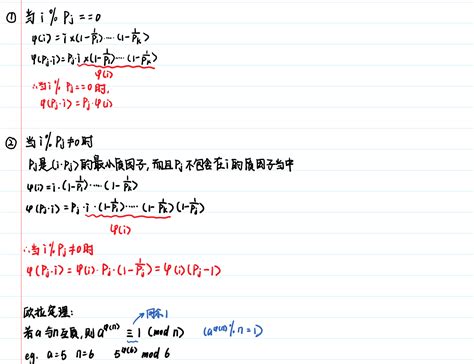 ① 当 i % Pj == 0
φ(i) = i × (1 - 1/Pi) ···· (1 - 1/Pk)
φ(Pj·i) = Pj·i × (1 - 1/Pi) ···· (1 - 1/Pk)
φ(i)
∴当 i % Pj == 0 时,
φ(Pj·i) = Pj·φ(i)
② 当 i % Pj ≠ 0 时
Pj是(i·Pj)的最小质因子, 而且Pj不包含在i的质因子当中
φ(i) = i·(1 - 1/Pi) ···· (1 - 1/Pk)
φ(Pj·i) = Pj·i·(1 - 1/Pi) ···· (1 - 1/Pk)(1 - 1/Pj)
φ(i)
∴当 i % Pj ≠ 0 时
φ(Pj·i) = φ(i)·Pj·(1 - 1/Pj) = φ(i)(Pj - 1)
欧拉定理:
同余1
若a与n互质, 则 a^φ(n) ≡ 1 (mod n) (a^φ(n) % n = 1)
eg. a=5 n=6 5^φ(6) mod 6